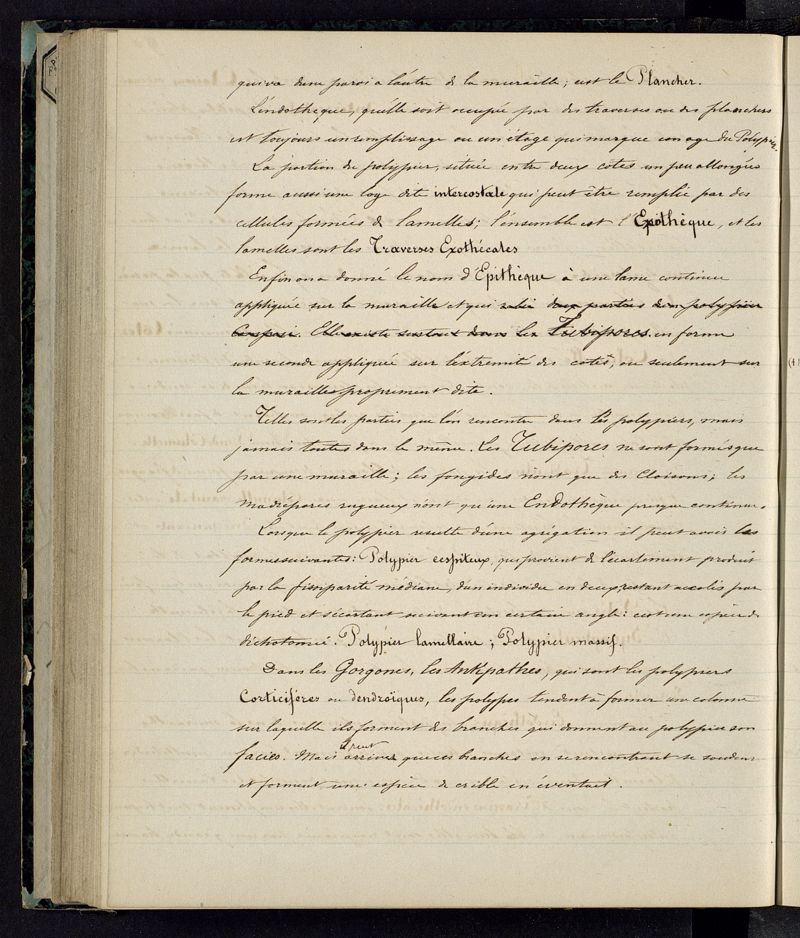 qui va d'une paroi a l'autre de la muraille; c'est le Plancher.
L'endotheque, qu'elle soit occupée par des traverses ou des planchers
est toujours un remplissage ou un étage qui marque un age du Polypier.
La portion du polypier, située entre deux cotes un peu allongées
forme aussi une loge dite intercostale qui peut être remplie par des
cellules formées de lamelles; l'ensemble est l'Exothèque, et les
lamelles sont les Traverses Exothécales
Enfin on a donné le nom d'Epithèque à une lame continue
appliquée sur la muraille et qui relie deux parties d'un polypier
Composé. Elle existe surtout dans les Tubipores. en forme
une seconde appliquée sur l'extremité des cotes, ou seulement sur
la muraille proprement dite.
Telles sont les parties que l'on rencontre dans les polypiers, mais
jamais toutes dans le même. Les Tubipores ne sont formés que
par une muraille; les fongides n'ont que des Cloisons; les
madrépores rugueux n'ont qu'une Endothèque presque continue.
Lorsque le polypier resulte d'une agrégation il peut avoir les
formes suivantes: Polypier cespiteux, qui provient de l'écartement produit
par la fissiparité médiane, d'un individu en deux, restant accolés par
le pied et s'écartant suivant un certain angle: c'est une espèce de
dichotomie. Polypier lamellaire; Polypier massif.
Dans les Gorgones, les Antipathes, qui sont les polypiers
Corticifères ou dendroïques, les polypes tendent à former une colonne
sur laquelle ils forment des branches qui donnent au polypier son
facies. Mais il peut arriver que ces branches en se rencontrant se soudent
et forment une espèce de crible en éventail.